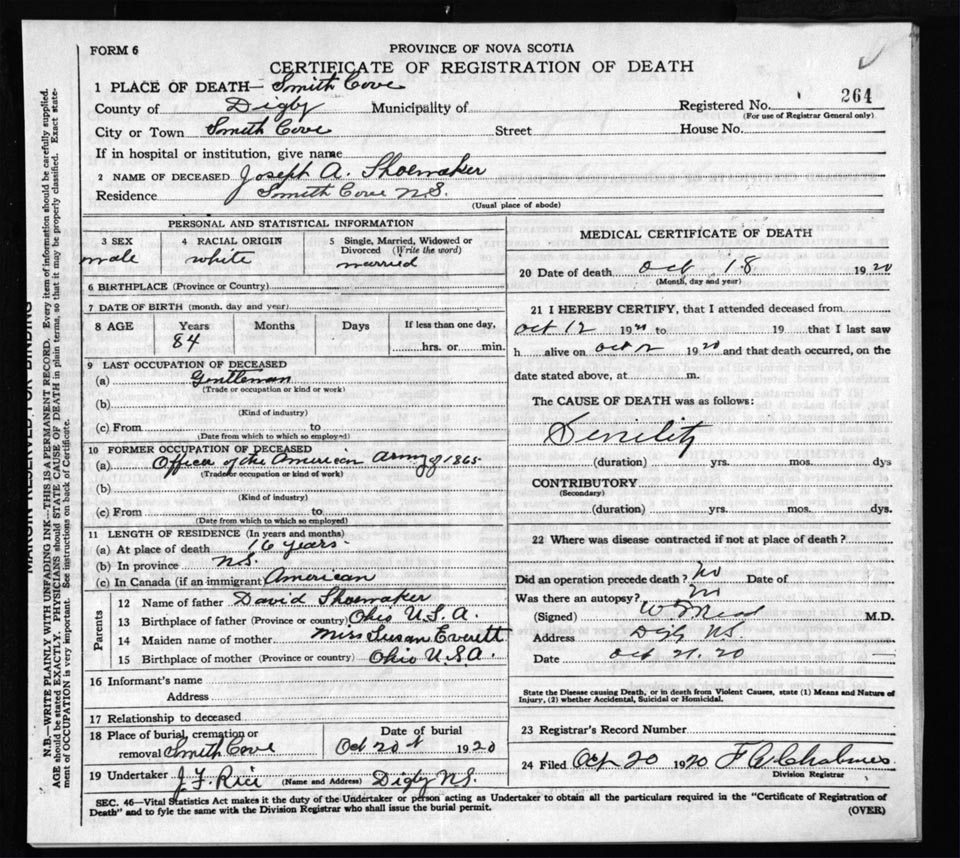 FORM 6
PROVINCE OF NOVA SCOTIA
CERTIFICATE OF REGISTRATION OF DEATH
1 PLACE OF DEATH— Smith Cove
County of Digby Municipality of
Registered No. 264
(For use of Registrar General only)
City or Town Smith Cove Street House No.
If in hospital or institution, give name
2 NAME OF DECEASED Joseph A. Shoemaker
Residence Smith Cove N.S.
(Usual place of abode)
PERSONAL AND STATISTICAL INFORMATION
3 SEX 4 RACIAL ORIGIN 5 Single, Married, Widowed or Divorced (Write the word)
male white married
6 BIRTHPLACE (Province or Country)
7 DATE OF BIRTH (month, day and year)
8 AGE Years Months Days If less than one day,
84 hrs. or min.
9 LAST OCCUPATION OF DECEASED
(a) Gentleman
(Trade or occupation or kind or work)
(b)
(Kind of industry)
(c) From to
(Date from which to which so employed)
10 FORMER OCCUPATION OF DECEASED
(a) Officer of the American Army of 1865
(Trade or occupation or kind of work)
(b)
(Kind of industry)
(c) From to
(Date from which to which so employed)
11 LENGTH OF RESIDENCE (In years and months)
(a) At place of death 16 years
(b) In province N.S.
(c) In Canada (if an immigrant) American
Parents
12 Name of father David Shoemaker
13 Birthplace of father (Province or country) Ohio U.S.A.
14 Maiden name of mother Miss Susan Everett
15 Birthplace of mother (Province or country) Ohio U.S.A.
16 Informant's name
Address
17 Relationship to deceased
18 Place of burial, cremation or removal Smith Cove
Date of burial
Oct 20 1920
19 Undertaker J. F. Rice (Name and Address) Digby N.S.
MEDICAL CERTIFICATE OF DEATH
20 Date of death Oct 18 1920
(Month, day and year)
21 I HEREBY CERTIFY, that I attended deceased from
Oct 12 19 to 19 that I last saw
h alive on Oct 1920 and that death occurred, on the
date stated above, at m.
The CAUSE OF DEATH was as follows:
Senility
(duration) yrs. mos. dys
CONTRIBUTORY
(Secondary)
(duration) yrs. mos. dys.
22 Where was disease contracted if not at place of death?
Did an operation precede death? no Date of
Was there an autopsy? no
(Signed) M.D.
Address Digby N.S.
Date Oct 21. 20
State the Disease causing Death, or in death from Violent Causes, state (1) Means and Nature of
Injury, (2) whether Accidental, Suicidal or Homicidal.
23 Registrar's Record Number
24 Filed Oct 20 1920
Division Registrar
SEC. 46—Vital Statistics Act makes it the duty of the Undertaker or person acting as Undertaker to obtain all the particulars required in the "Certificate of Registration of
Death" and to fyle the same with the Division Registrar who shall issue the burial permit. (OVER)
MARGIN RESERVED FOR BINDING
N.B.—WRITE PLAINLY WITH UNFADING INK—THIS IS A PERMANENT RECORD. Every item of information should be carefully supplied.
AGE should be stated EXACTLY. PHYSICIANS should STATE CAUSE OF DEATH in plain terms, so that it may be properly classified. Exact state-
ment of OCCUPATION is very important. See instructions on back of Certificate.